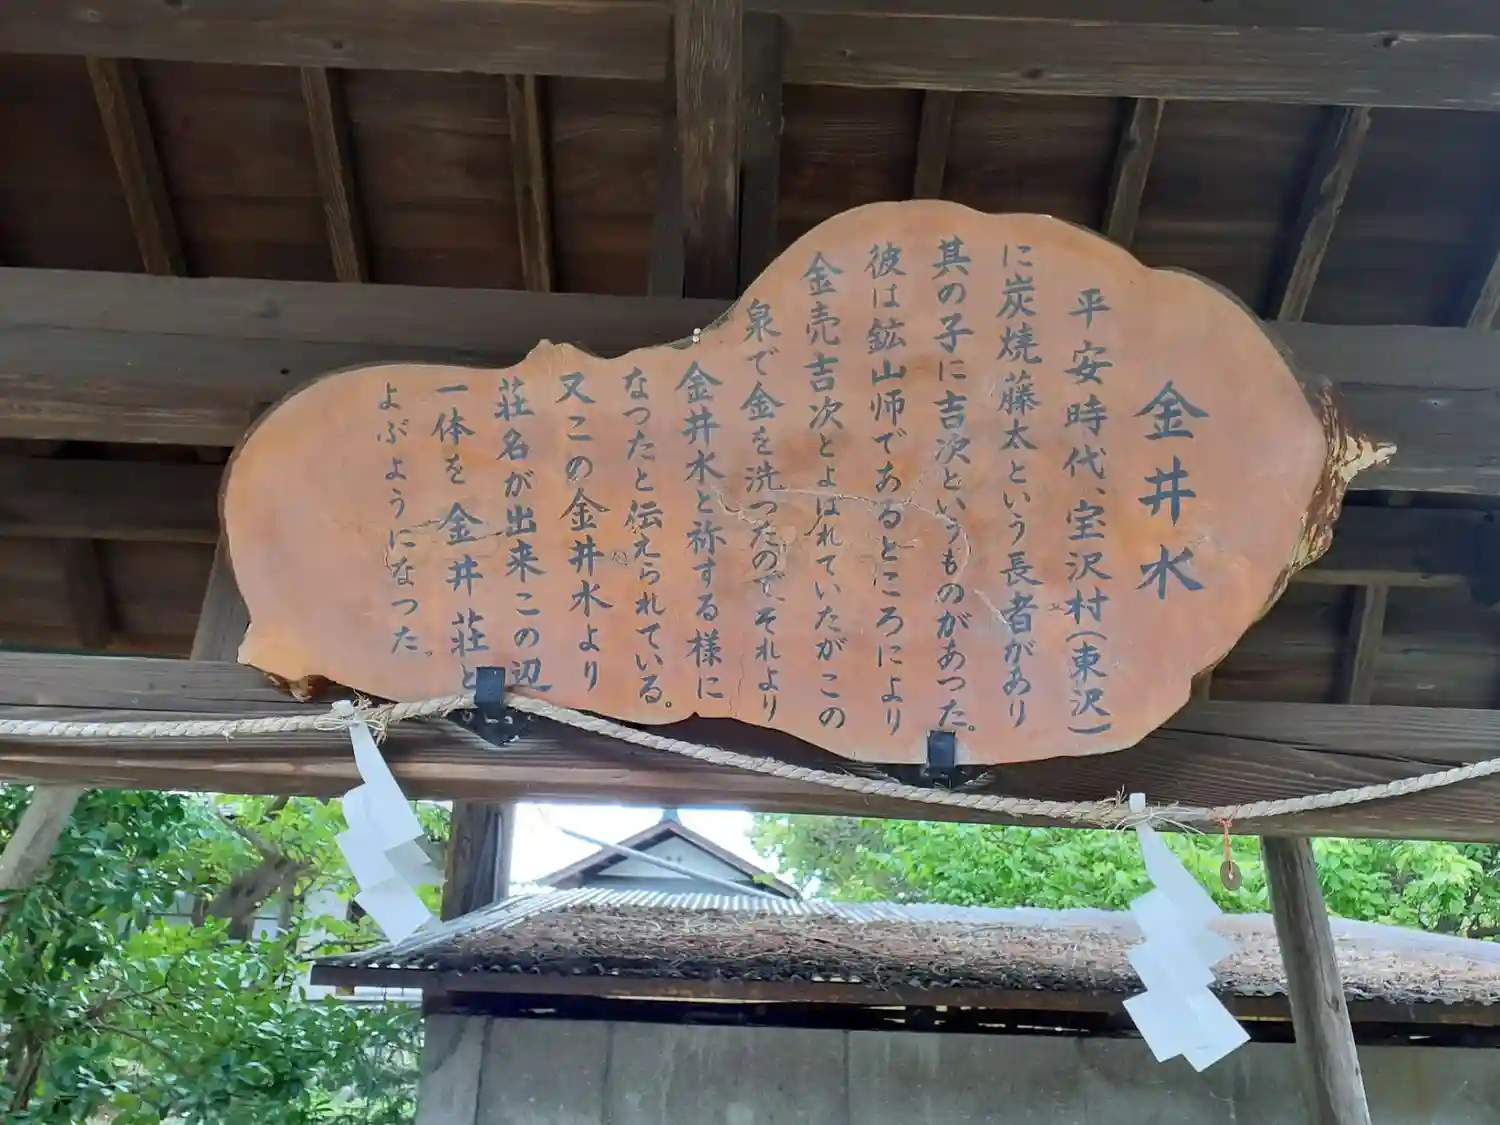 金井水
平安時代、宝沢村(東沢)
に炭焼藤太という長者があり
其の子に吉次というものがあつた。
彼は鉱山師であるところにより
金売吉次とよばれていたがこの
泉で金を洗つたので、それより
金井水と祢する様に
なつたと伝えられている。
又この金井水より
荘名が出来この辺
一体を金井荘と
よぶようになつた。